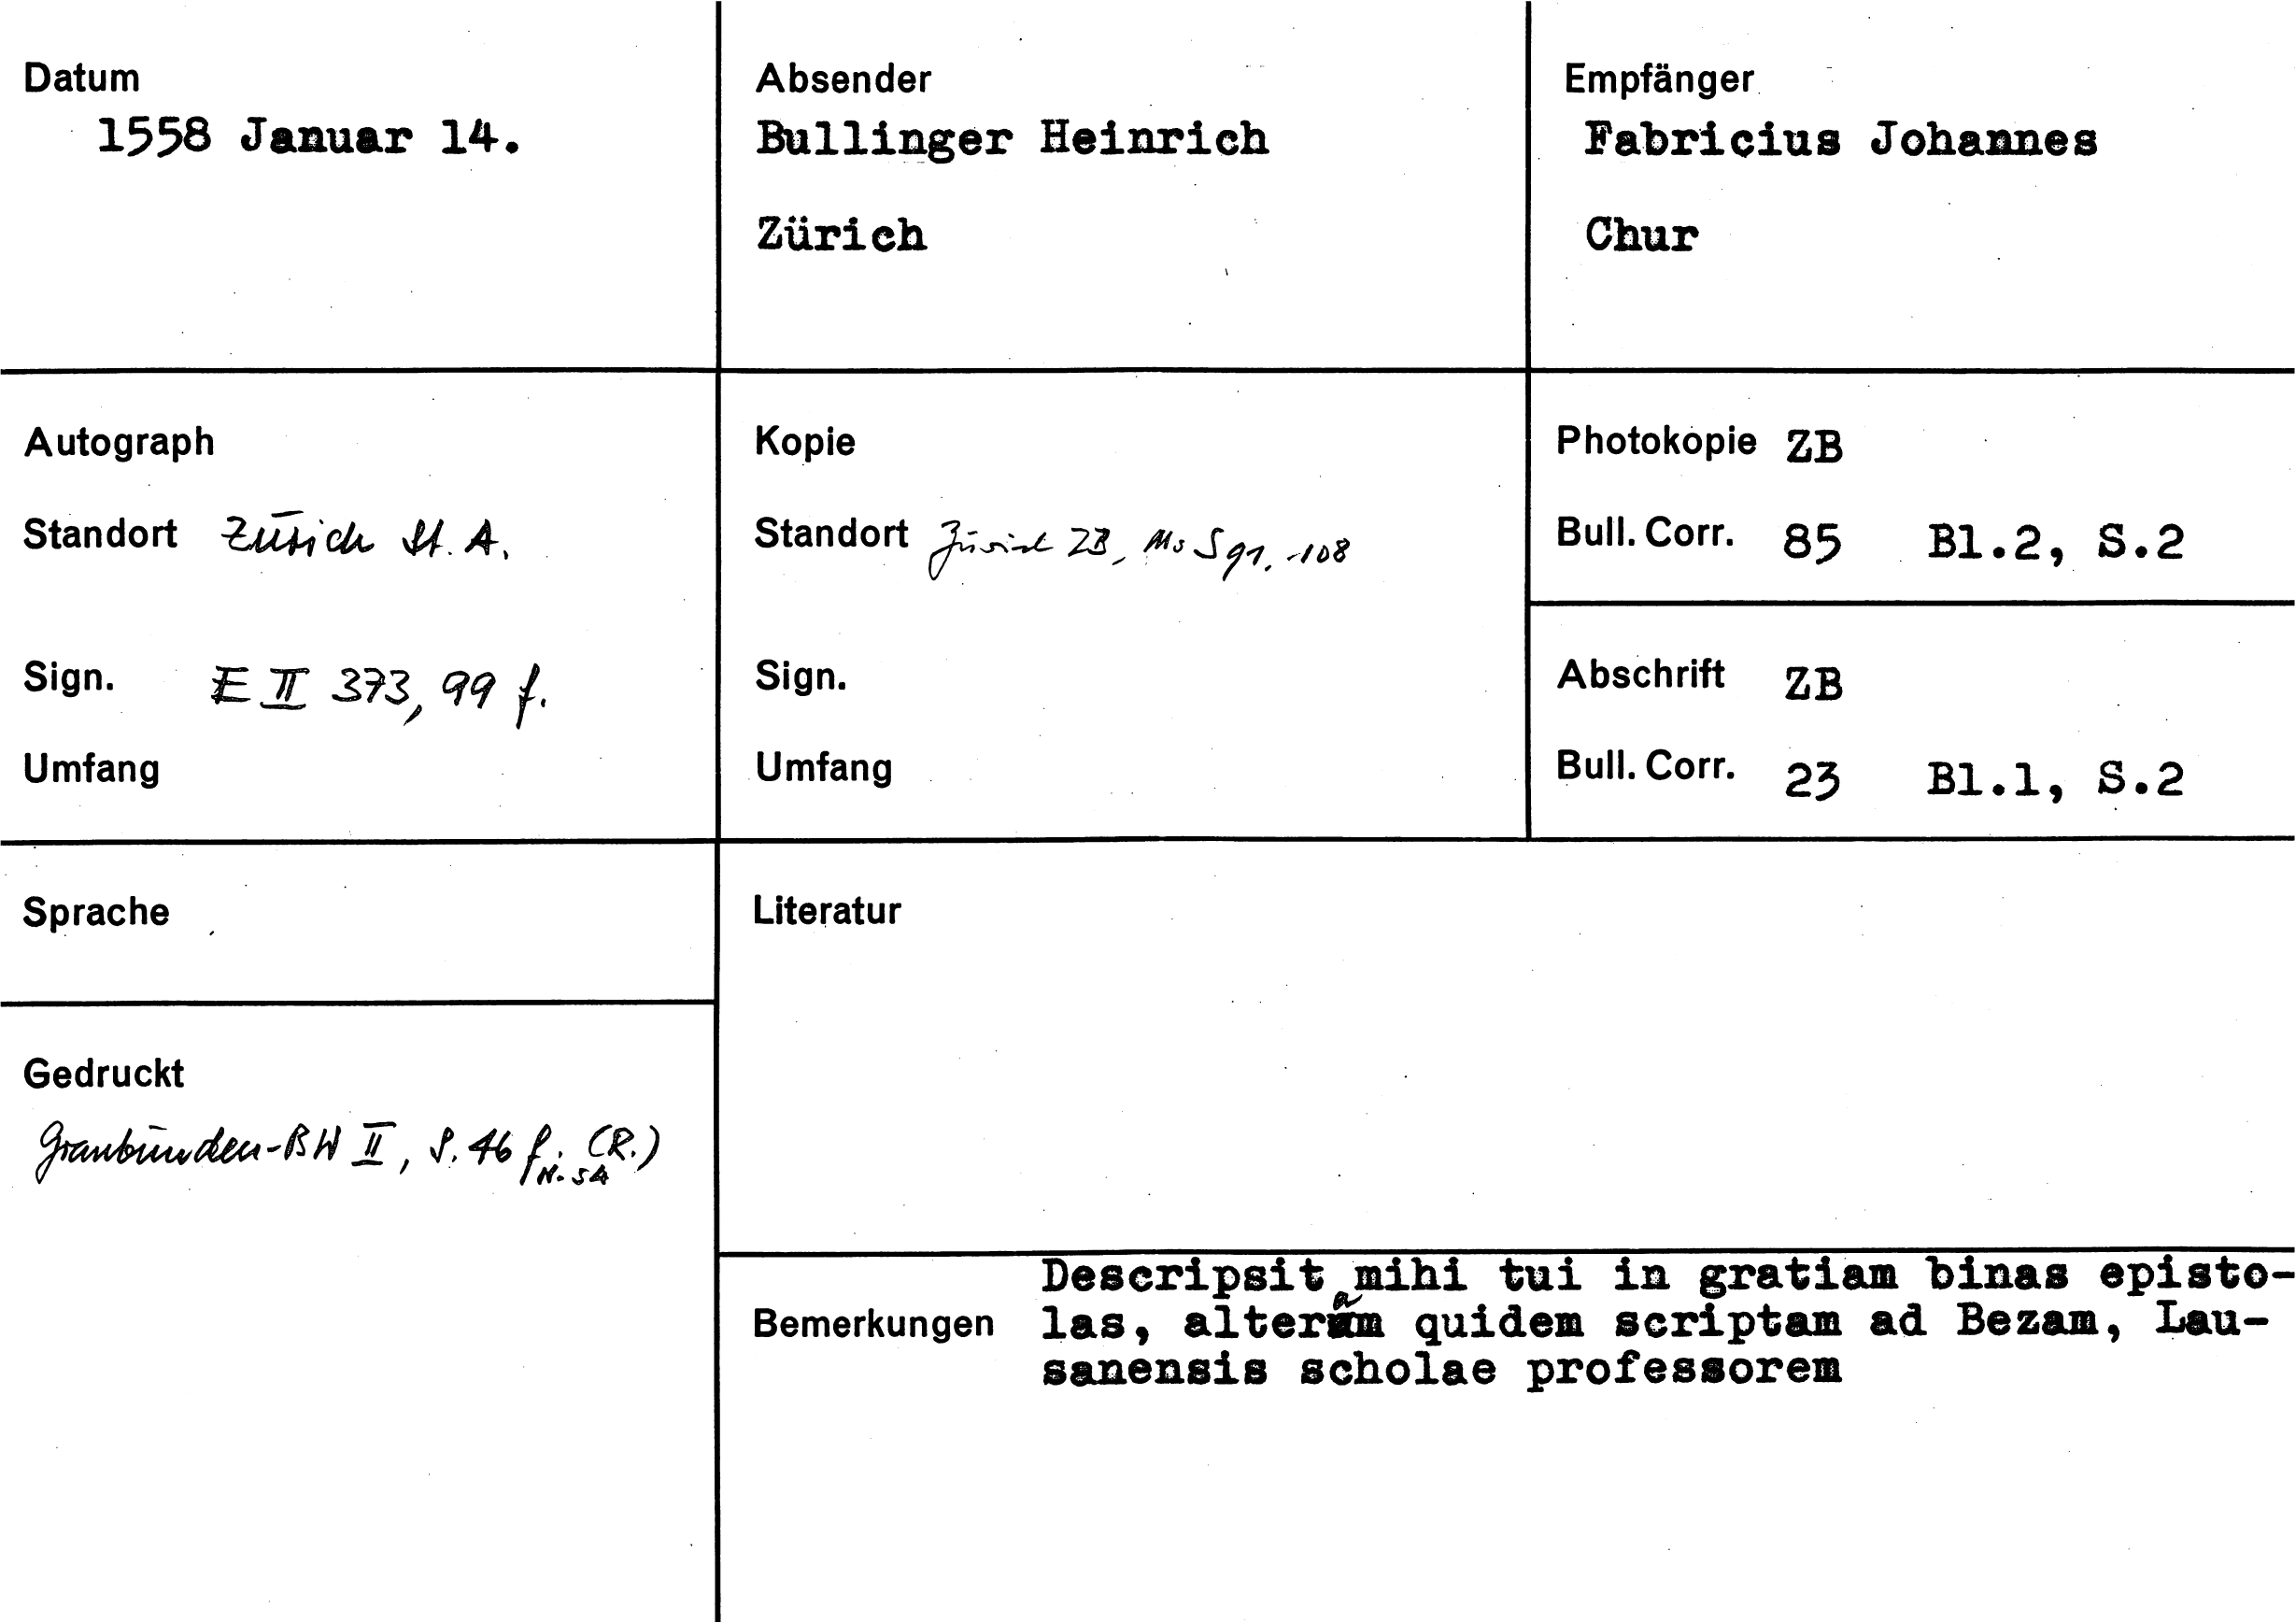 Datum
1558 Januar 14.
Absender
Bullinger Heinrich
Zürich
Empfänger
Fabricius Johannes
Chur
Autograph
Standort Zürich St. A.
Sign. E II 373, 99 f.
Umfang
Kopie
Standort Zürich ZB, Ms S 91, 108
Sign.
Umfang
Photokopie ZB
Bull. Corr. 85 Bl.2, S.2
Abschrift ZB
Bull. Corr. 23 Bl.1, S.2
Sprache
Literatur
Gedruckt
Graubünden-BW II, S. 46 f. (R.)
N. 54
Bemerkungen
Descripsit mihi tui in gratiam binas episto-
las, alteram quidem scriptam ad Bezam, Lau-
sanensis scholae professorem